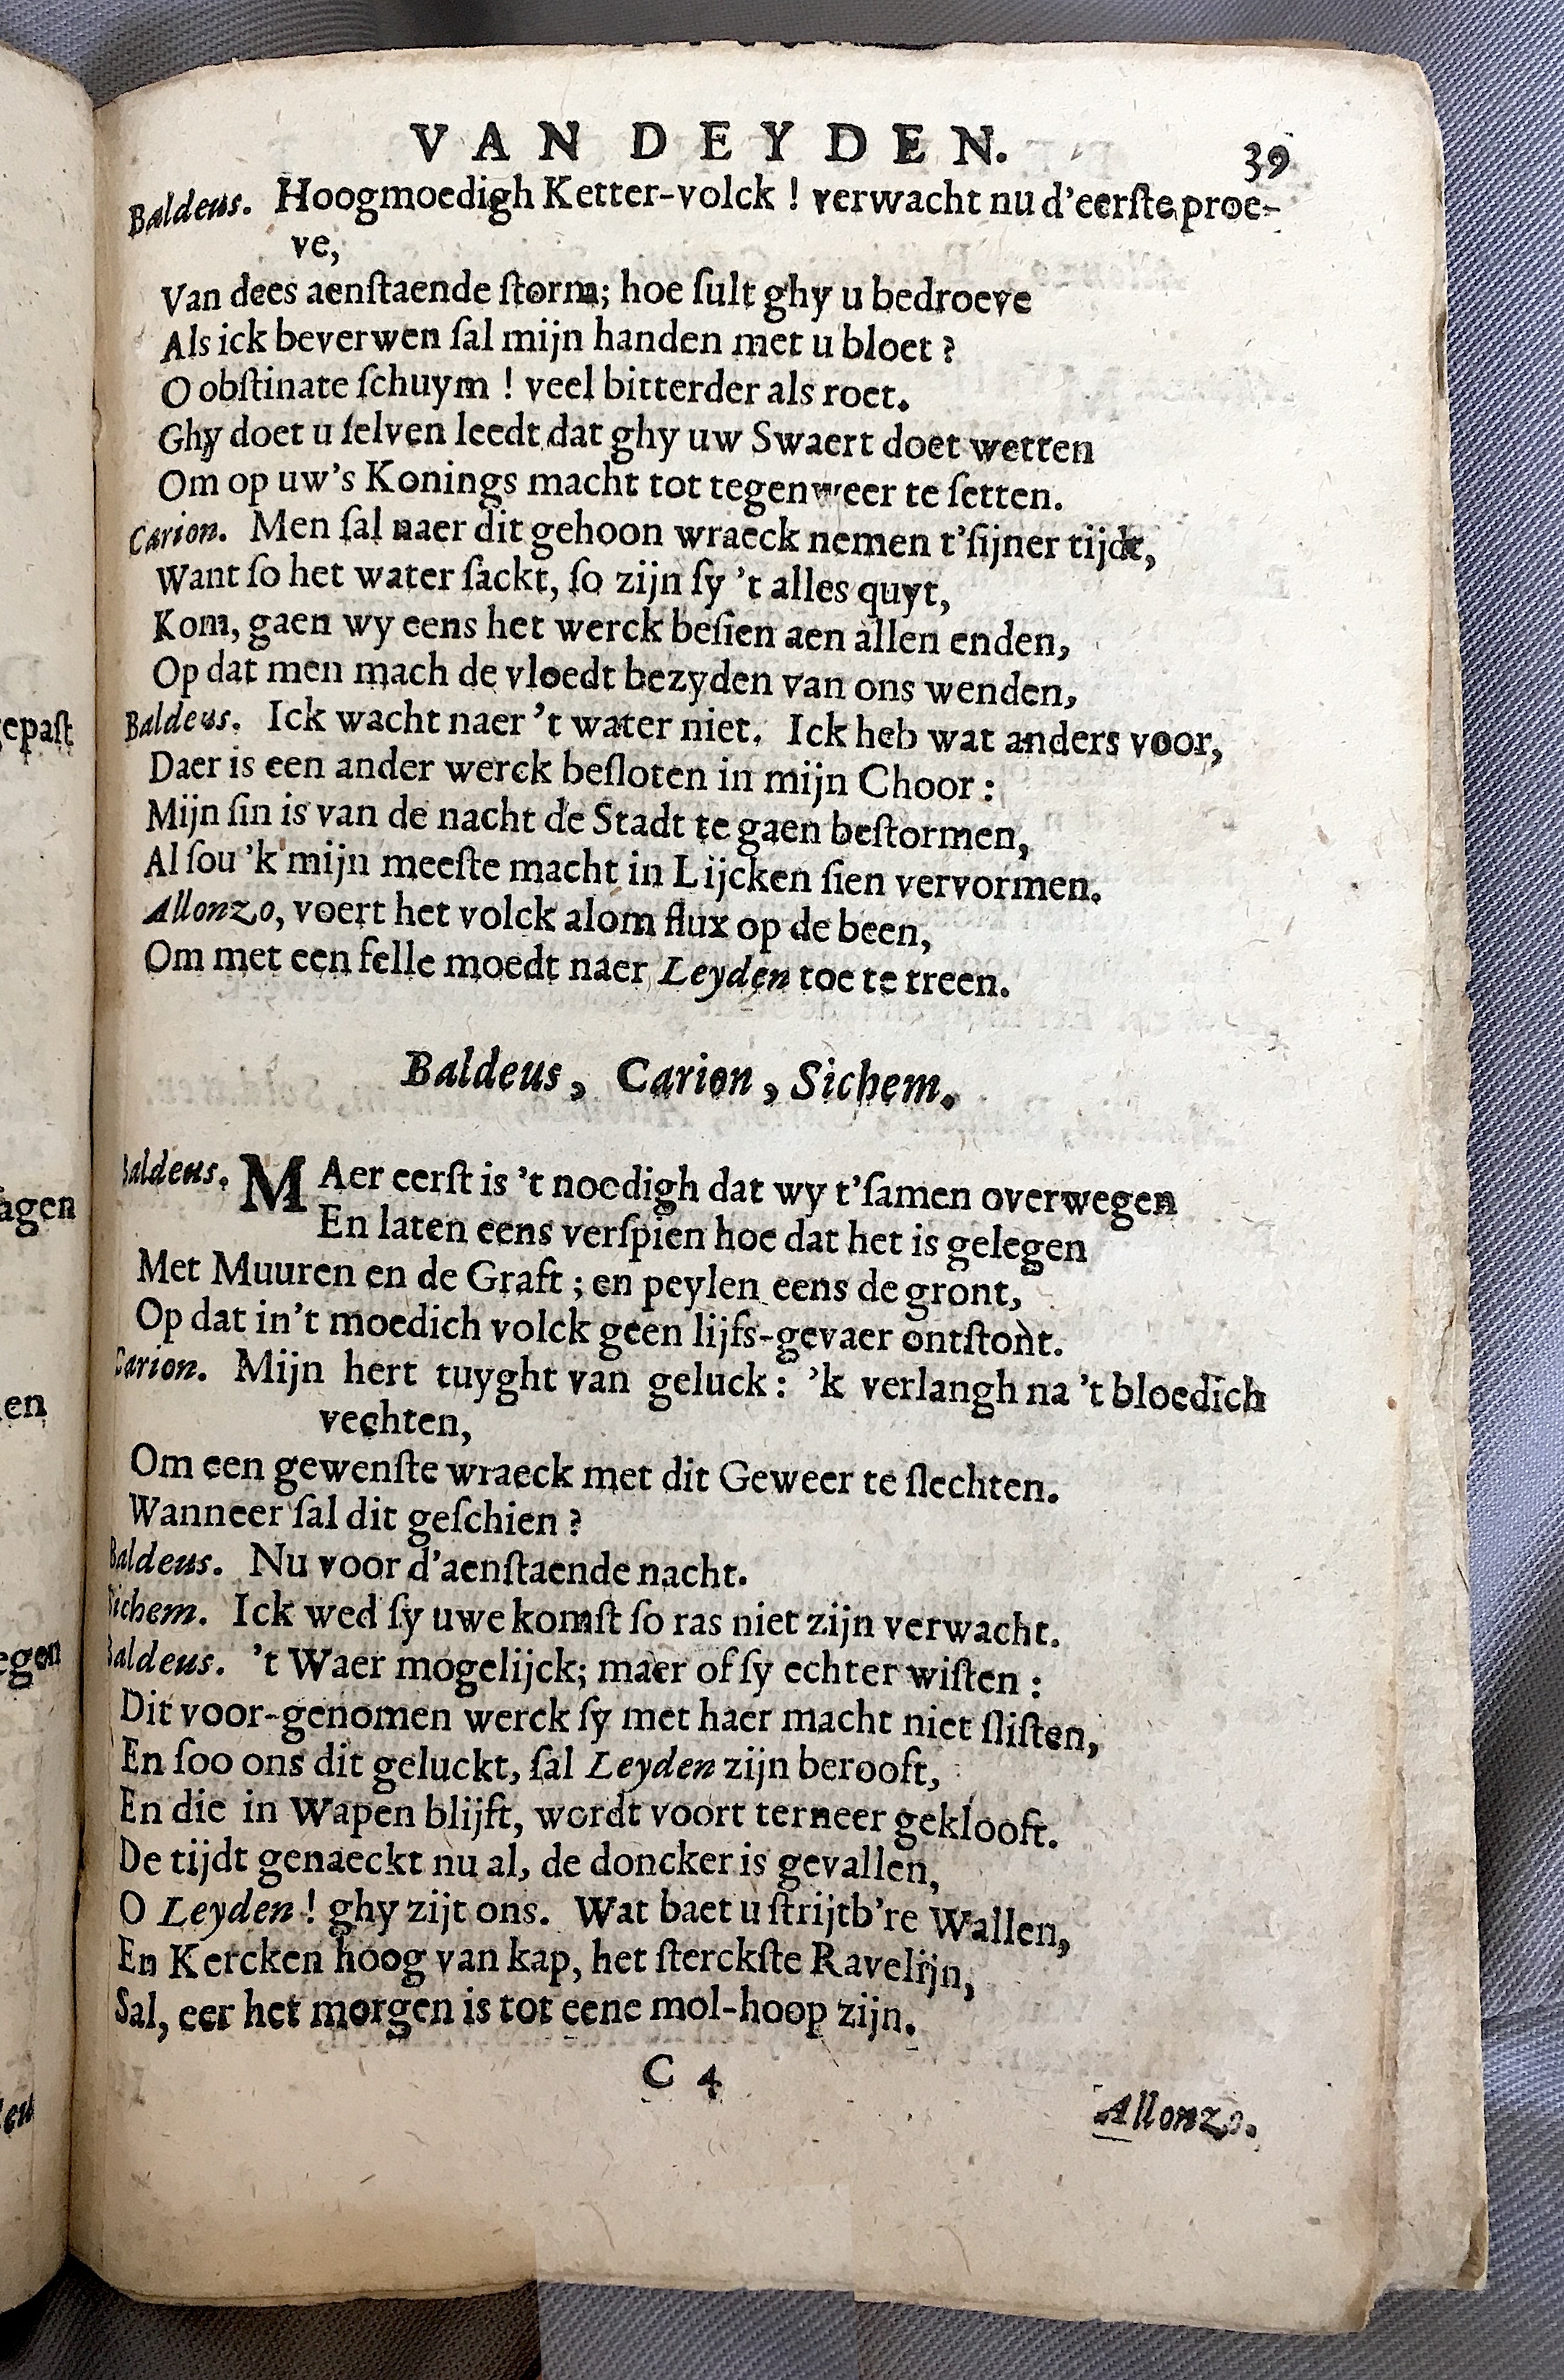 VAN DEYDEN. 39
Baldeus. Hoogmoedigh Ketter-volck ! verwacht nu d'eerſte proe-
ve,
Van dees aenſtaende ſtorm; hoe ſult ghy u bedroeve
Als ick beverwen ſal mijn handen met u bloet ?
O obſtinate ſchuym ! veel bitterder als roet.
Ghy doet u ſelven leedt dat ghy uw Swaert doet wetten
Om op uw's Konings macht tot tegenweer te ſetten.
Carion. Men ſal naer dit gehoon wraeck nemen t'ſijner tijdt,
Want ſo het water ſackt, ſo zijn ſy 't alles quyt,
Kom, gaen wy eens het werck beſien aen allen enden,
Op dat men mach de vloedt bezyden van ons wenden,
Baldeus. Ick wacht naer 't water niet. Ick heb wat anders voor,
Daer is een ander werck beſloten in mijn Choor :
Mijn ſin is van de nacht de Stadt te gaen beſtormen,
Al ſou 'k mijn meeſte macht in Lijcken ſien vervormen.
Allonzo, voert het volck alom flux op de been,
Om met een felle moedt naer Leyden toe te treen.
Baldeus, Carion, Sichem.
Baldeus. MAer eerſt is 't noodigh dat wy t'ſamen overwegen
En laten eens verſpien hoe dat het is gelegen
Met Muuren en de Graft ; en peylen eens de gront,
Op dat in't moedich volck geen lijfs-gevaer ontſtont.
Carion. Mijn hert tuyght van geluck : 'k verlangh na 't bloedich
vechten,
Om een gewenſte wraeck met dit Geweer te ſlechten.
Wanneer ſal dit geſchien ?
Baldeus. Nu voor d'aenſtaende nacht.
Sichem. Ick wed ſy uwe komſt ſo ras niet zijn verwacht.
Baldeus. 't Waer mogelijck; maer of ſy echter wiſten :
Dit voor-genomen werck ſy met haer macht niet ſliſten,
En ſoo ons dit geluckt, ſal Leyden zijn berooft,
En die in Wapen blijft, wordt voort terneer geklooft.
De tijdt genaeckt nu al, de doncker is gevallen,
O Leyden ! ghy zijt ons. Wat baet u ſtrijtb're Wallen,
En Kercken hoog van kap, het ſterckſte Ravelijn,
Sal, eer het morgen is tot eene mol-hoop zijn.
C 4
Allonzo.